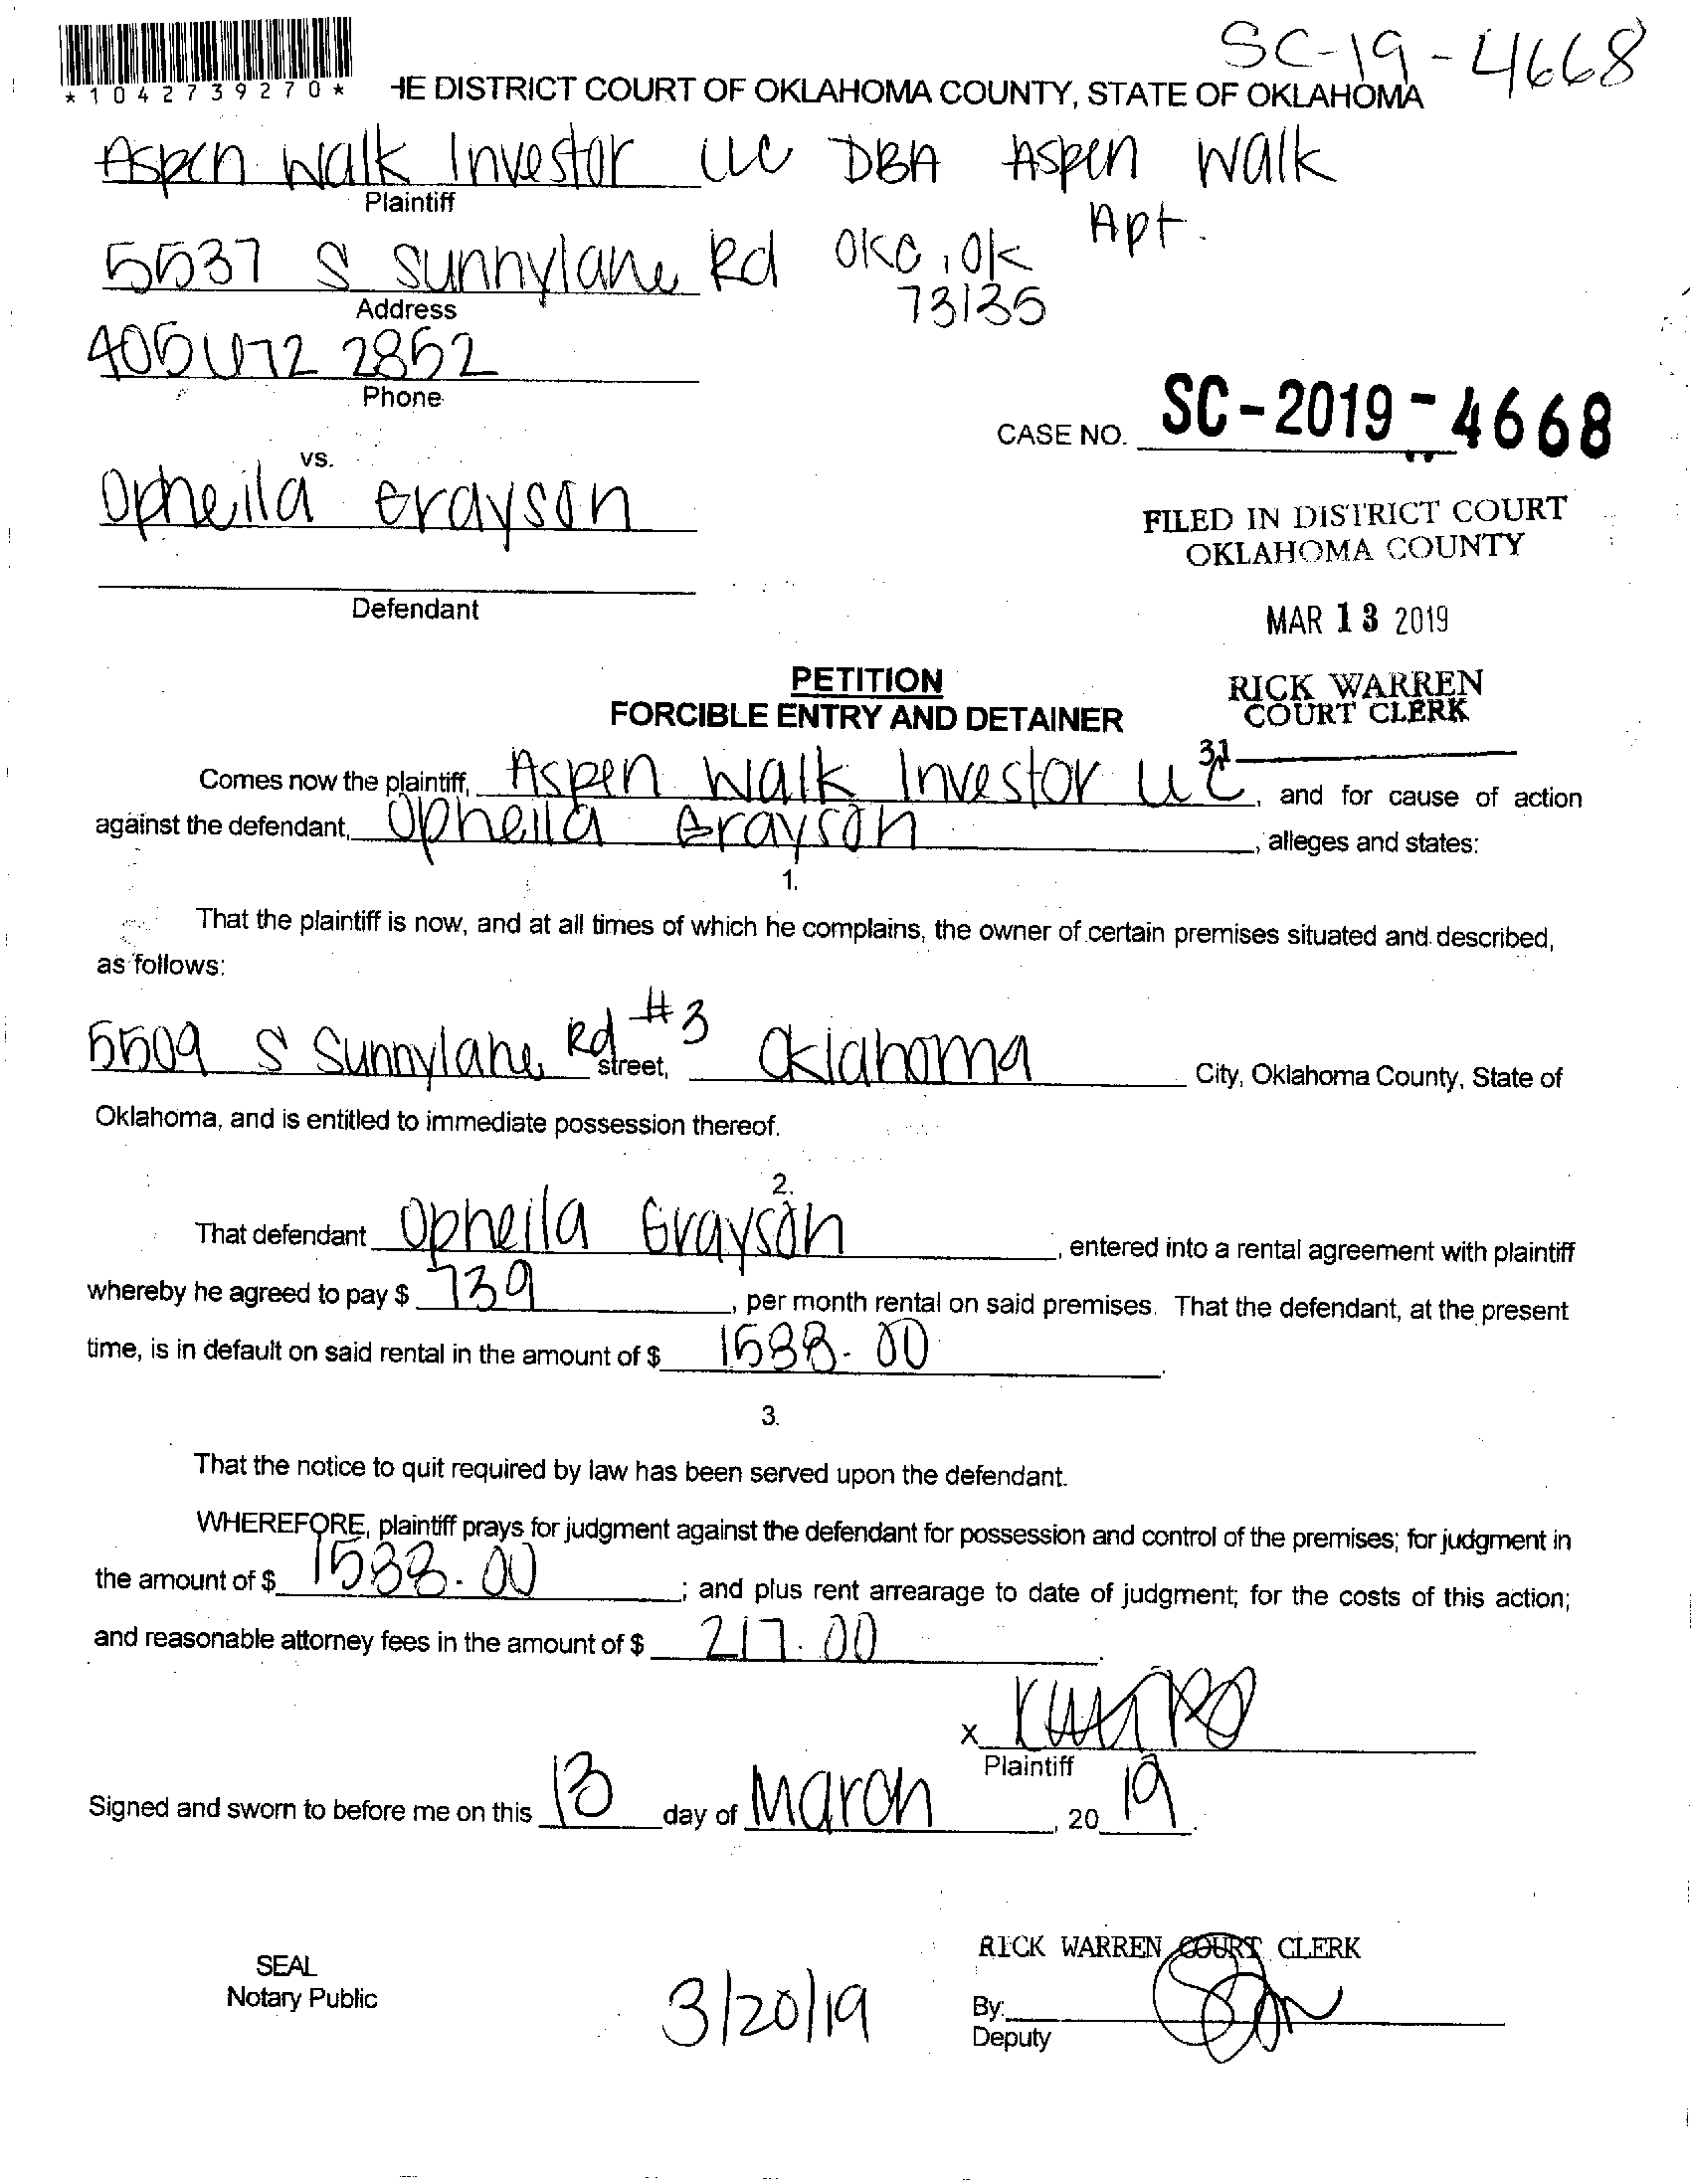 SC-19-4668
*1042739270*
HE DISTRICT COURT OF OKLAHOMA COUNTY, STATE OF OKLAHOMA
Aspen Walk Investor LLC DBA Aspen Walk
Apt.
Plaintiff
5537 S Sunnylane Rd OKC, OK
73135
Address
405 672 2852
Phone
CASE NO. SC-2019-4668
vs.
Opheila Grayson
FILED IN DISTRICT COURT
OKLAHOMA COUNTY
Defendant
MAR 13 2019
PETITION
FORCIBLE ENTRY AND DETAINER
RICK WARREN
COURT CLERK
31
Comes now the plaintiff, Aspen Walk Investor LLC, and for cause of action
against the defendant, Opheila Grayson, alleges and states:
1.
That the plaintiff is now, and at all times of which he complains, the owner of certain premises situated and described,
as follows:
5509 S Sunnylane Rd #3 street, Oklahoma City, Oklahoma County, State of
Oklahoma, and is entitled to immediate possession thereof.
2.
That defendant Opheila Grayson, entered into a rental agreement with plaintiff
whereby he agreed to pay $ 739, per month rental on said premises. That the defendant, at the present
time, is in default on said rental in the amount of $ 1588.00.
3.
That the notice to quit required by law has been served upon the defendant.
WHEREFORE, plaintiff prays for judgment against the defendant for possession and control of the premises; for judgment in
the amount of $ 1588.00; and plus rent arrearage to date of judgment; for the costs of this action;
and reasonable attorney fees in the amount of $ 217.00.
x
Plaintiff
Signed and sworn to before me on this 13 day of March, 20 19.
RICK WARREN COURT CLERK
SEAL
Notary Public
3/20/19
By:
Deputy